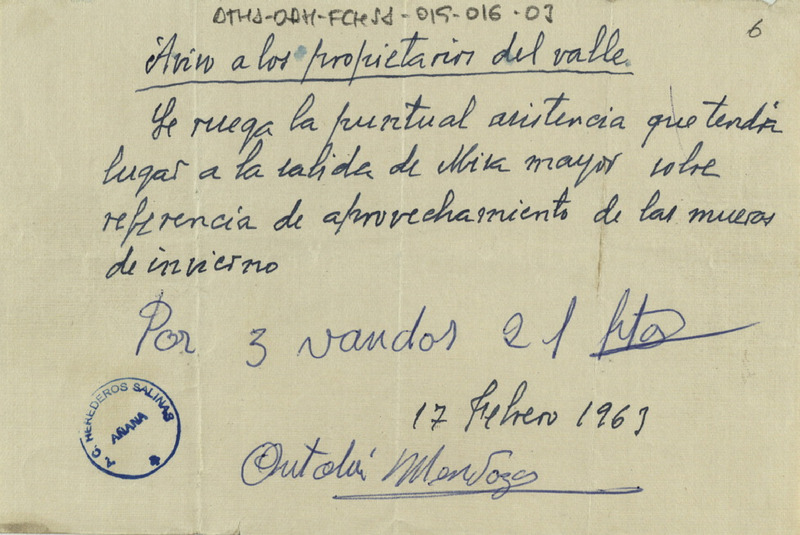 ATHA-DAH-FCHSS-015-016-03
6
Aviso a los propietarios del valle.
Se ruega la puntual asistencia que tendrá
lugar a la salida de Misa mayor sobre
referencia de aprovechamiento de las mueras
de invierno
Por 3 vandos 21 Pta
17 Febrero 1963
Mendoza
HEREDEROS SALINAS
AÑANA